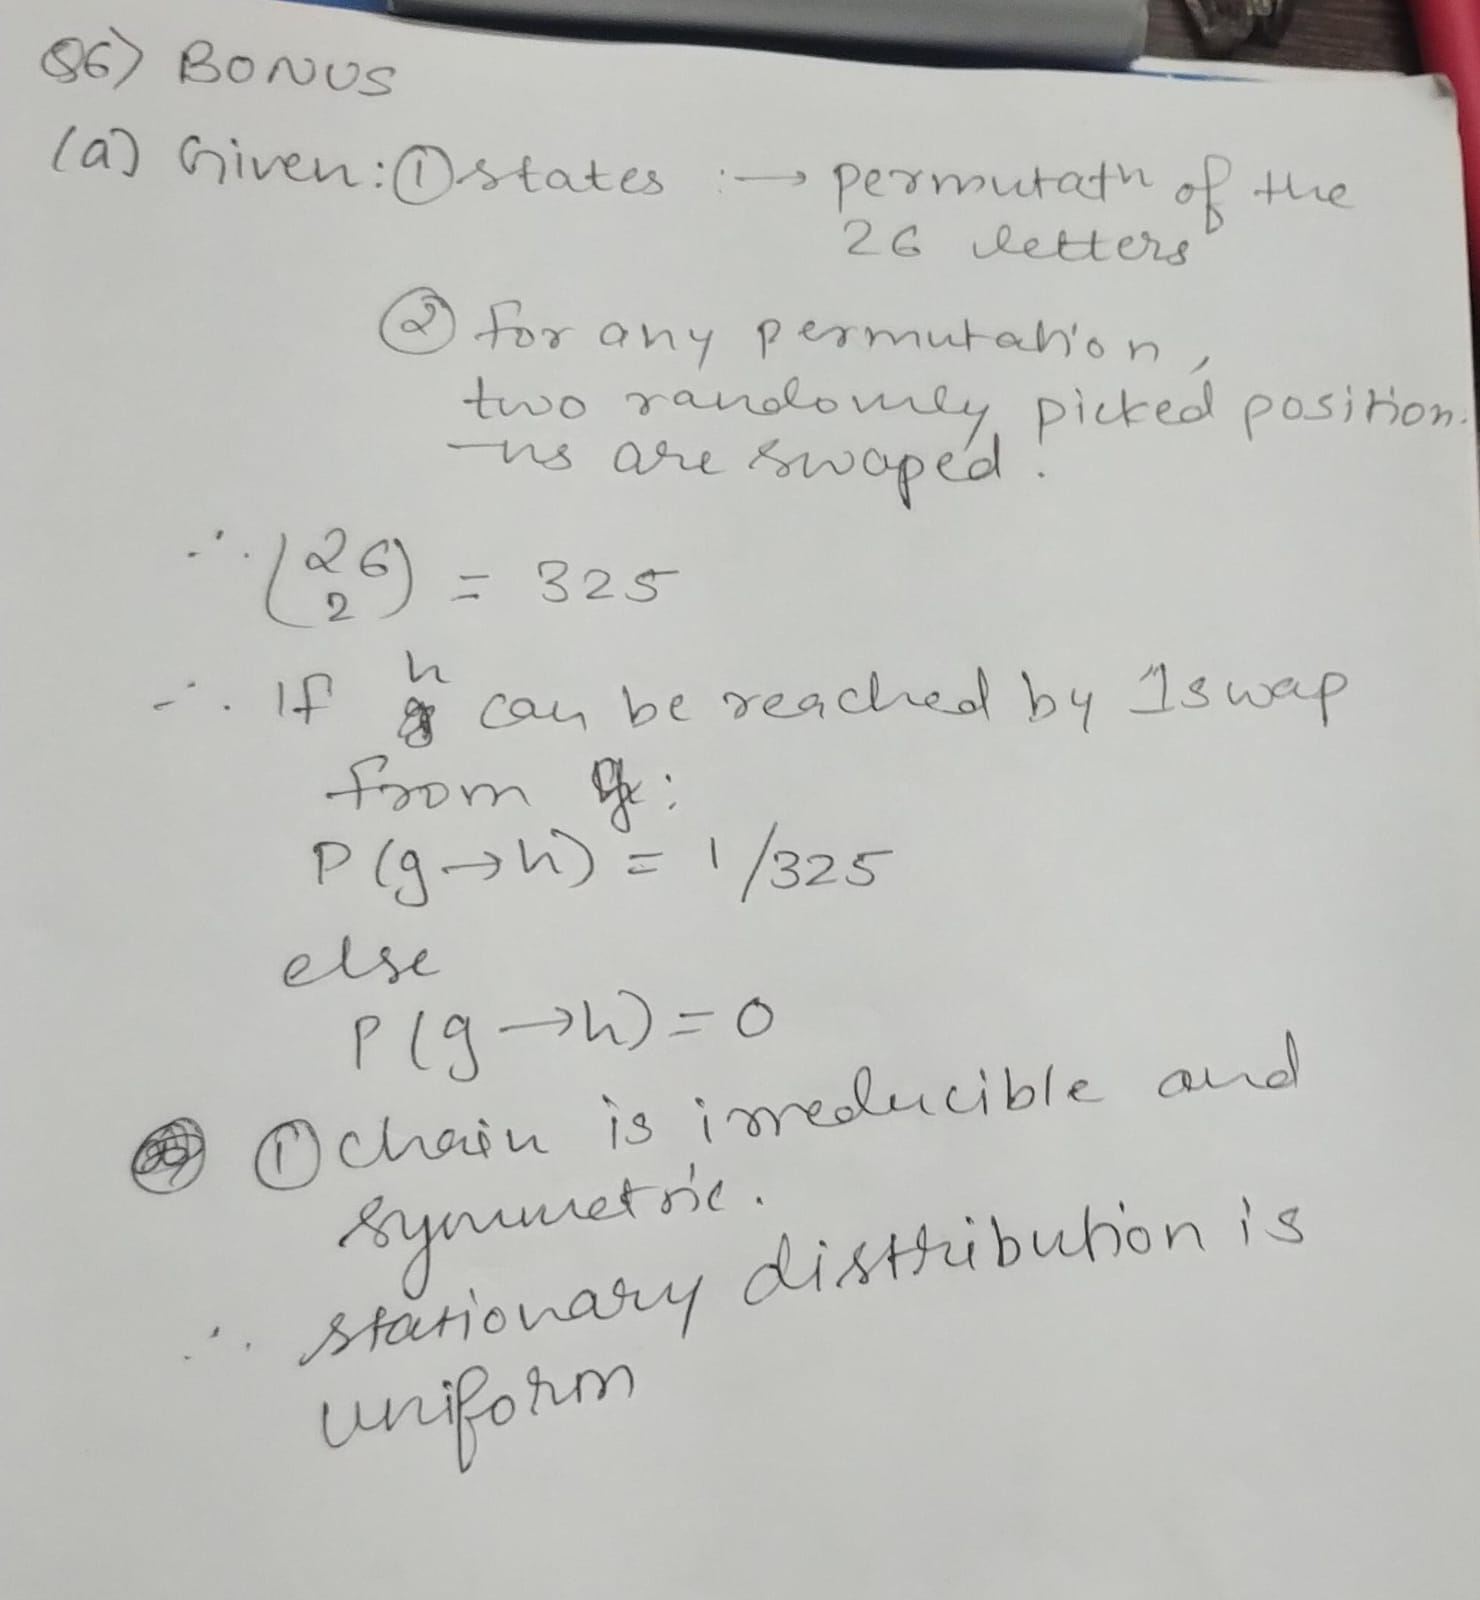 Q6) BONUS
(a) Given: ① states :→ permutatn of the
26 letters
② for any permutation,
two randomly picked position-
-ns are swaped.
∴ (26 2) = 325
∴ If h can be reached by 1 swap
from g:
P(g→h) = 1/325
else
P(g→h) = 0
① chain is irreducible and
symmetric.
∴ stationary distribution is
uniform